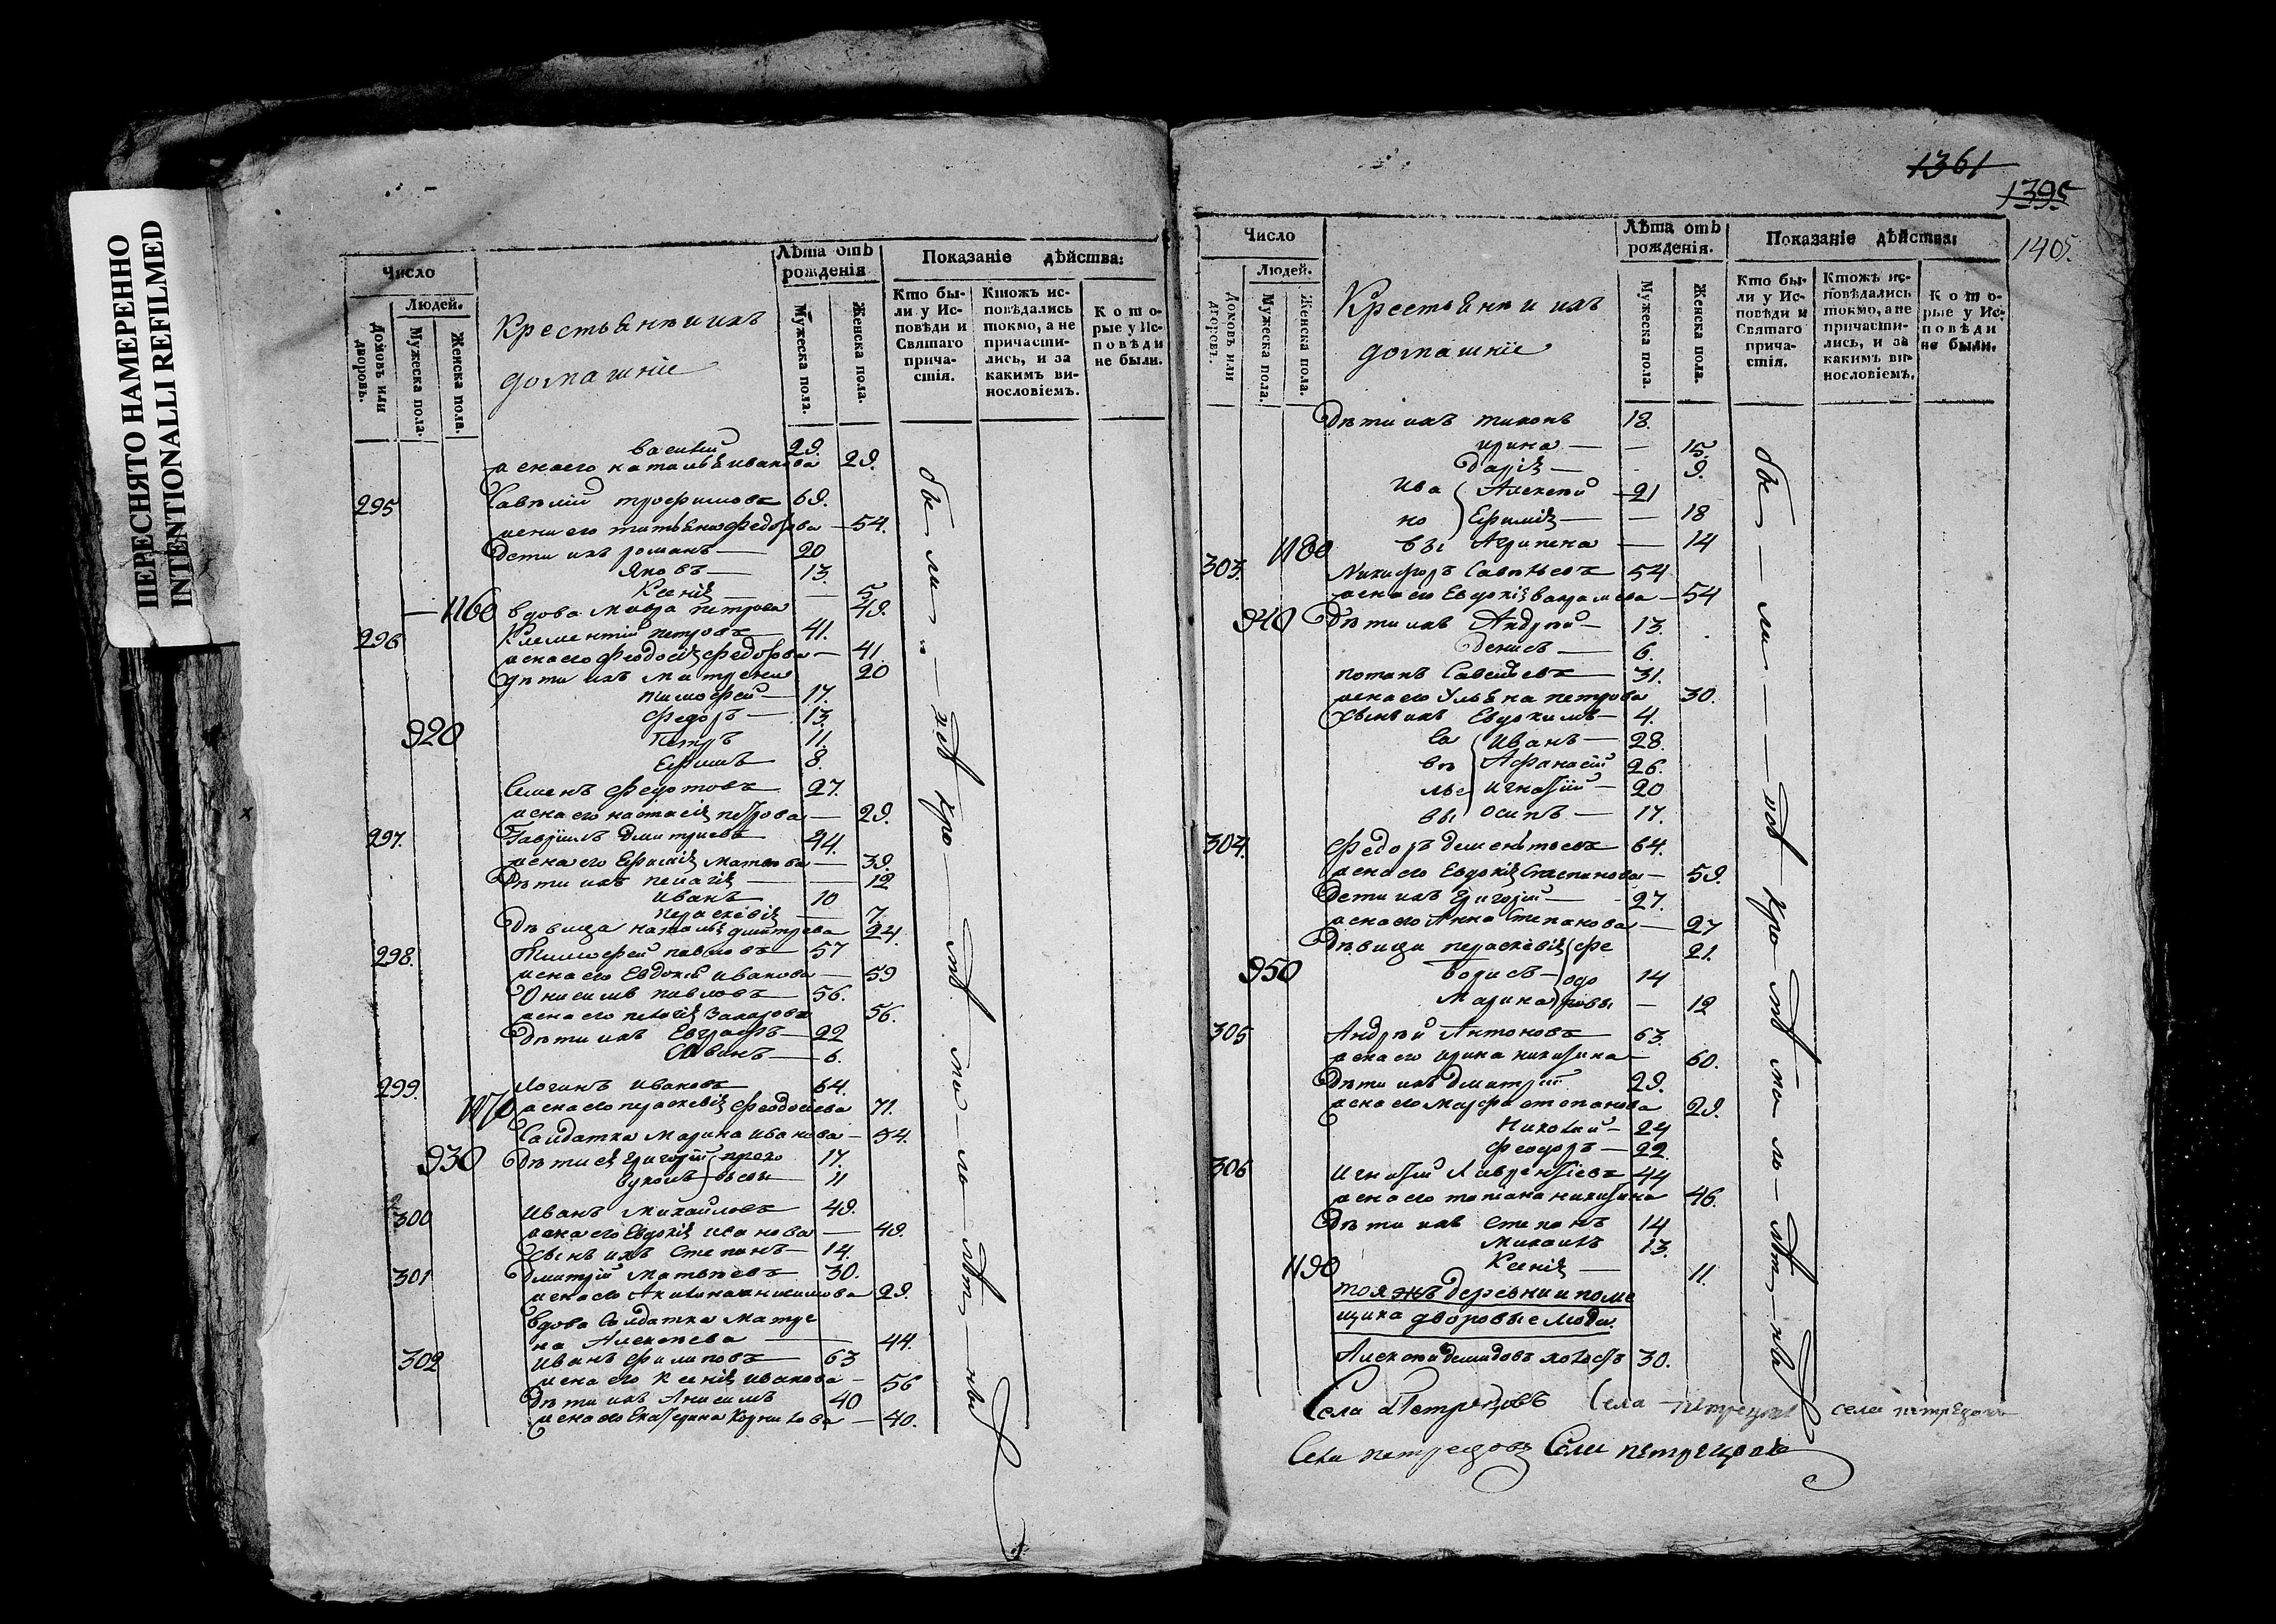 ПЕРЕСНЯТО НАМЕРЕННО
INTENTIONALLI REFILMED
Число
Людей.
Домовъ или дворовъ.
Мужеска пола.
Женска пола.
Крестьяне и ихъ
домашніе
Лѣта отъ рожденія
Мужеска пола.
Женска пола.
Показаніе дѣйства:
Кто бы-
ли у Ис-
повѣди и
Святаго
прича-
стія.
Ктожъ ис-
повѣдались
токмо, а не
причасти-
лись, и за
какимъ ви-
нословіемъ.
Кото-
рые у Ис-
повѣди
не были.
василій 29.
жена его наталья иванова 29.
295 Савелій трофимовъ 69.
жена его татьяна федорова — 54.
дети ихъ романъ — 20
яковъ — 13.
Ксенія — — 5.
— 1160 вдова Мавра петрова 49.
296 Климентій петровъ 41.
жена его феодосія федорова — 41.
дѣти ихъ матрена 20
тимофей — 17.
федоръ — 13.
920 Петръ 11.
Ефимъ 8.
Семенъ федотовъ 27.
жена его настасія петрова — 29.
297. Гавріилъ дмитріевъ 44.
жена его Ефимія матвѣева — 39.
Дѣти ихъ пелагія — — 12
иванъ 10
параскевія — 7.
Дѣвица наталья дмитрева 24.
298. Тимофей павловъ 57
жена его Евдокія иванова — 59
Онисимъ павловъ 56.
жена его пелагія Захарова 56.
дѣти ихъ Евграфъ — 22
иванъ — 6.
299. логинъ ивановъ 64.
1170 жена его параскевія феодосіева 71.
Салдатка марина иванова — 54.
930 дѣти ея григорій 17.
вуколъ 11
300 иванъ михайловъ 49.
жена его Евдокія иванова — 49.
сынъ ихъ степанъ — 14.
301 дмитрій матвѣевъ 30.
жена его Акилина 29.
вдова Салдатка матре
на Алексѣева — 44.
302 иванъ филиповъ 63
жена его ксенія иванова — 56
дѣти ихъ Анисимъ 40
жена его Екатерина Корнилова — 40.
бы — ли —
1361
1395
1405.
Число
Людей.
Домовъ или дворовъ.
Мужеска пола.
Женска пола.
Крестьяне и ихъ
домашніе
Лѣта отъ рожденія.
Мужеска пола.
Женска пола.
Показаніе дѣйства:
Кто бы-
ли у Ис-
повѣди и
Святаго
прича-
стія.
Ктожъ ис-
повѣдались
токмо, а не
причасти-
лись, и за
какимъ ви-
нословіемъ.
Кото-
рые у Ис-
повѣди
не были.
Дѣти ихъ тихонъ 18.
ирина — — 15.
Дарія — 9.
Ива Алексѣй — 21
но Ефимія — — 18
вы Агрипена — 14
303. 1180 Никифоръ Савельевъ 54
жена его Евдокія — 54
940 Дѣти ихъ Андрей — 13.
денисъ — 6.
потапъ Савельевъ 31.
жена его Ульяна петрова 30.
сынъ ихъ Евдокимъ — 4.
Са иванъ — 28.
ве Афанасій 26.
лье игнатій — 20
вы осипъ — 17.
304. федоръ дементьевъ 64.
жена его Евдокія Степанова — 59.
дети ихъ григорій — 27.
жена его Анна Степанова — 27
Дѣвица параскевія фе 21.
950 борисъ — одо 14
Марина ровы — 12
305 Андрей Антоновъ 63.
жена его ирина никитина — 60.
дѣти ихъ дмитрій 29.
жена его марфа степанова 29.
Николай — 24
феодоръ — 22.
306 игнатій лаврентіевъ 44
жена его татіана никитина 46.
Дѣти ихъ степанъ 14
михаилъ 13.
1190 Ксенія — 11.
тояжъ деревни и поме
щика дворовые люди.
Алексѣй демидовъ холостъ 30.
бы — ли —
Села Петрецовъ Села петрецовъ села петрецовъ
Села петрецовъ Села петрецовъ